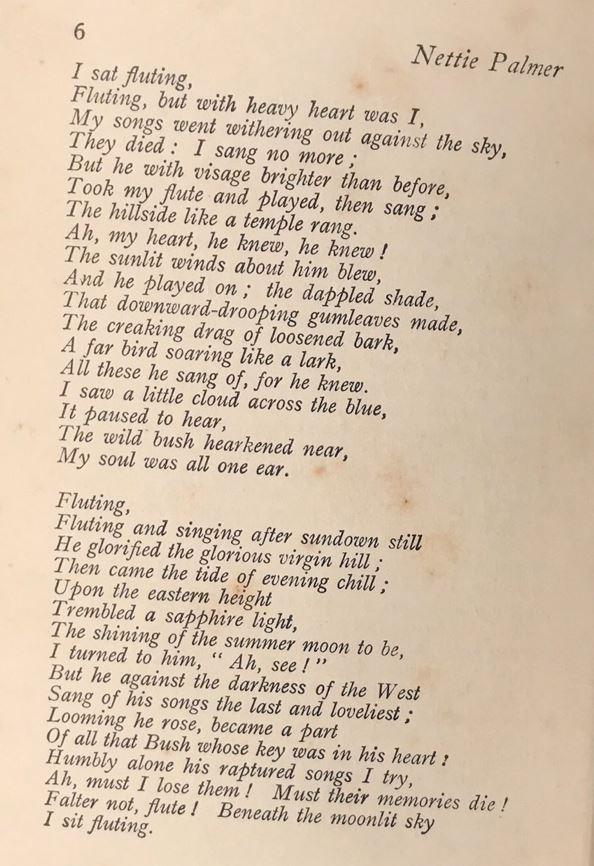 6
Nettie Palmer
I sat fluting,
Fluting, but with heavy heart was I,
My songs went withering out against the sky,
They died: I sang no more;
But he with visage brighter than before,
Took my flute and played, then sang;
The hillside like a temple rang.
Ah, my heart, he knew, he knew!
The sunlit winds about him blew,
And he played on; the dappled shade,
That downward-drooping gumleaves made,
The creaking drag of loosened bark,
A far bird soaring like a lark,
All these he sang of, for he knew.
I saw a little cloud across the blue,
It paused to hear,
The wild bush hearkened near,
My soul was all one ear.
Fluting,
Fluting and singing after sundown still
He glorified the glorious virgin hill;
Then came the tide of evening chill;
Upon the eastern height
Trembled a sapphire light,
The shining of the summer moon to be,
I turned to him, "Ah, see!"
But he against the darkness of the West
Sang of his songs the last and loveliest;
Looming he rose, became a part
Of all that Bush whose key was in his heart:
Humbly alone his raptured songs I try,
Ah, must I lose them! Must their memories die!
Falter not, flute! Beneath the moonlit sky
I sit fluting.